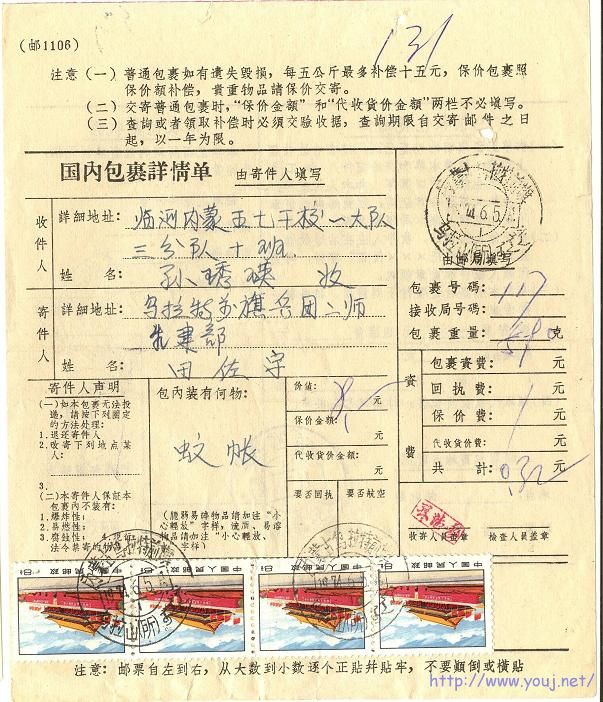 (邮1106)
131
注意 (一) 普通包裹如有遺失毀損，每五公斤最多补偿十五元，保价包裹照
保价額补偿，貴重物品請保价交寄。
(二) 交寄普通包裹时，“保价金額”和“代收貨价金額”两栏不必填写。
(三) 查詢或者領取补偿时必须交验收据，查詢期限自交寄邮件之日
起，以一年为限。
国内包裹詳情单 由寄件人填写
收件人
詳細地址： 临河内蒙五七干校一大队
三分队十班
姓名： 孙琇瑛 收
寄件人
詳細地址： 乌拉特前旗兵团二师
姓名： 田佐宇
由邮局填写
包裹号碼： 117
接收局号碼：
包裹重量： 克
資費
包裹資費： 元
回执費： 元
保价費： 元
代收貨价費： 元
共計： 0.32 元
收寄人員盖章 检查人員盖章
寄件人声明
(一)如本包裹无法投
递，請按下列圈定
的方法处理：
1.退还寄件人
2.改寄下列地点某
人：
3.
(二)本寄件人保証本
包裹内不装有：
1.爆炸性；
2.易燃性；
3.腐蝕性；
包内装有何物：
蚊帐
(脆弱易碎物品請加注“小
心輕放”字样，流质、易溶
物品請加注“小心輕放、
价值： 元
保价金額： 元
代收貨价金額： 元
要否回执 要否航空
中国人民邮政
中国人民邮政
中国人民邮政
中国人民邮政
注意：邮票自左到右，从大数到小数逐个正貼幷貼牢，不要顚倒或橫貼
http://www.youj.net/